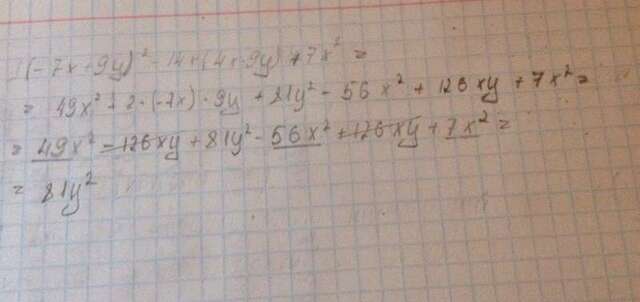 (-7x+9y)² - 14x(4x-9y) + 7x² =
= 49x² + 2·(-7x)·9y + 81y² - 56x² + 126xy + 7x² =
= 49x² - 126xy + 81y² - 56x² + 126xy + 7x² =
= 81y²